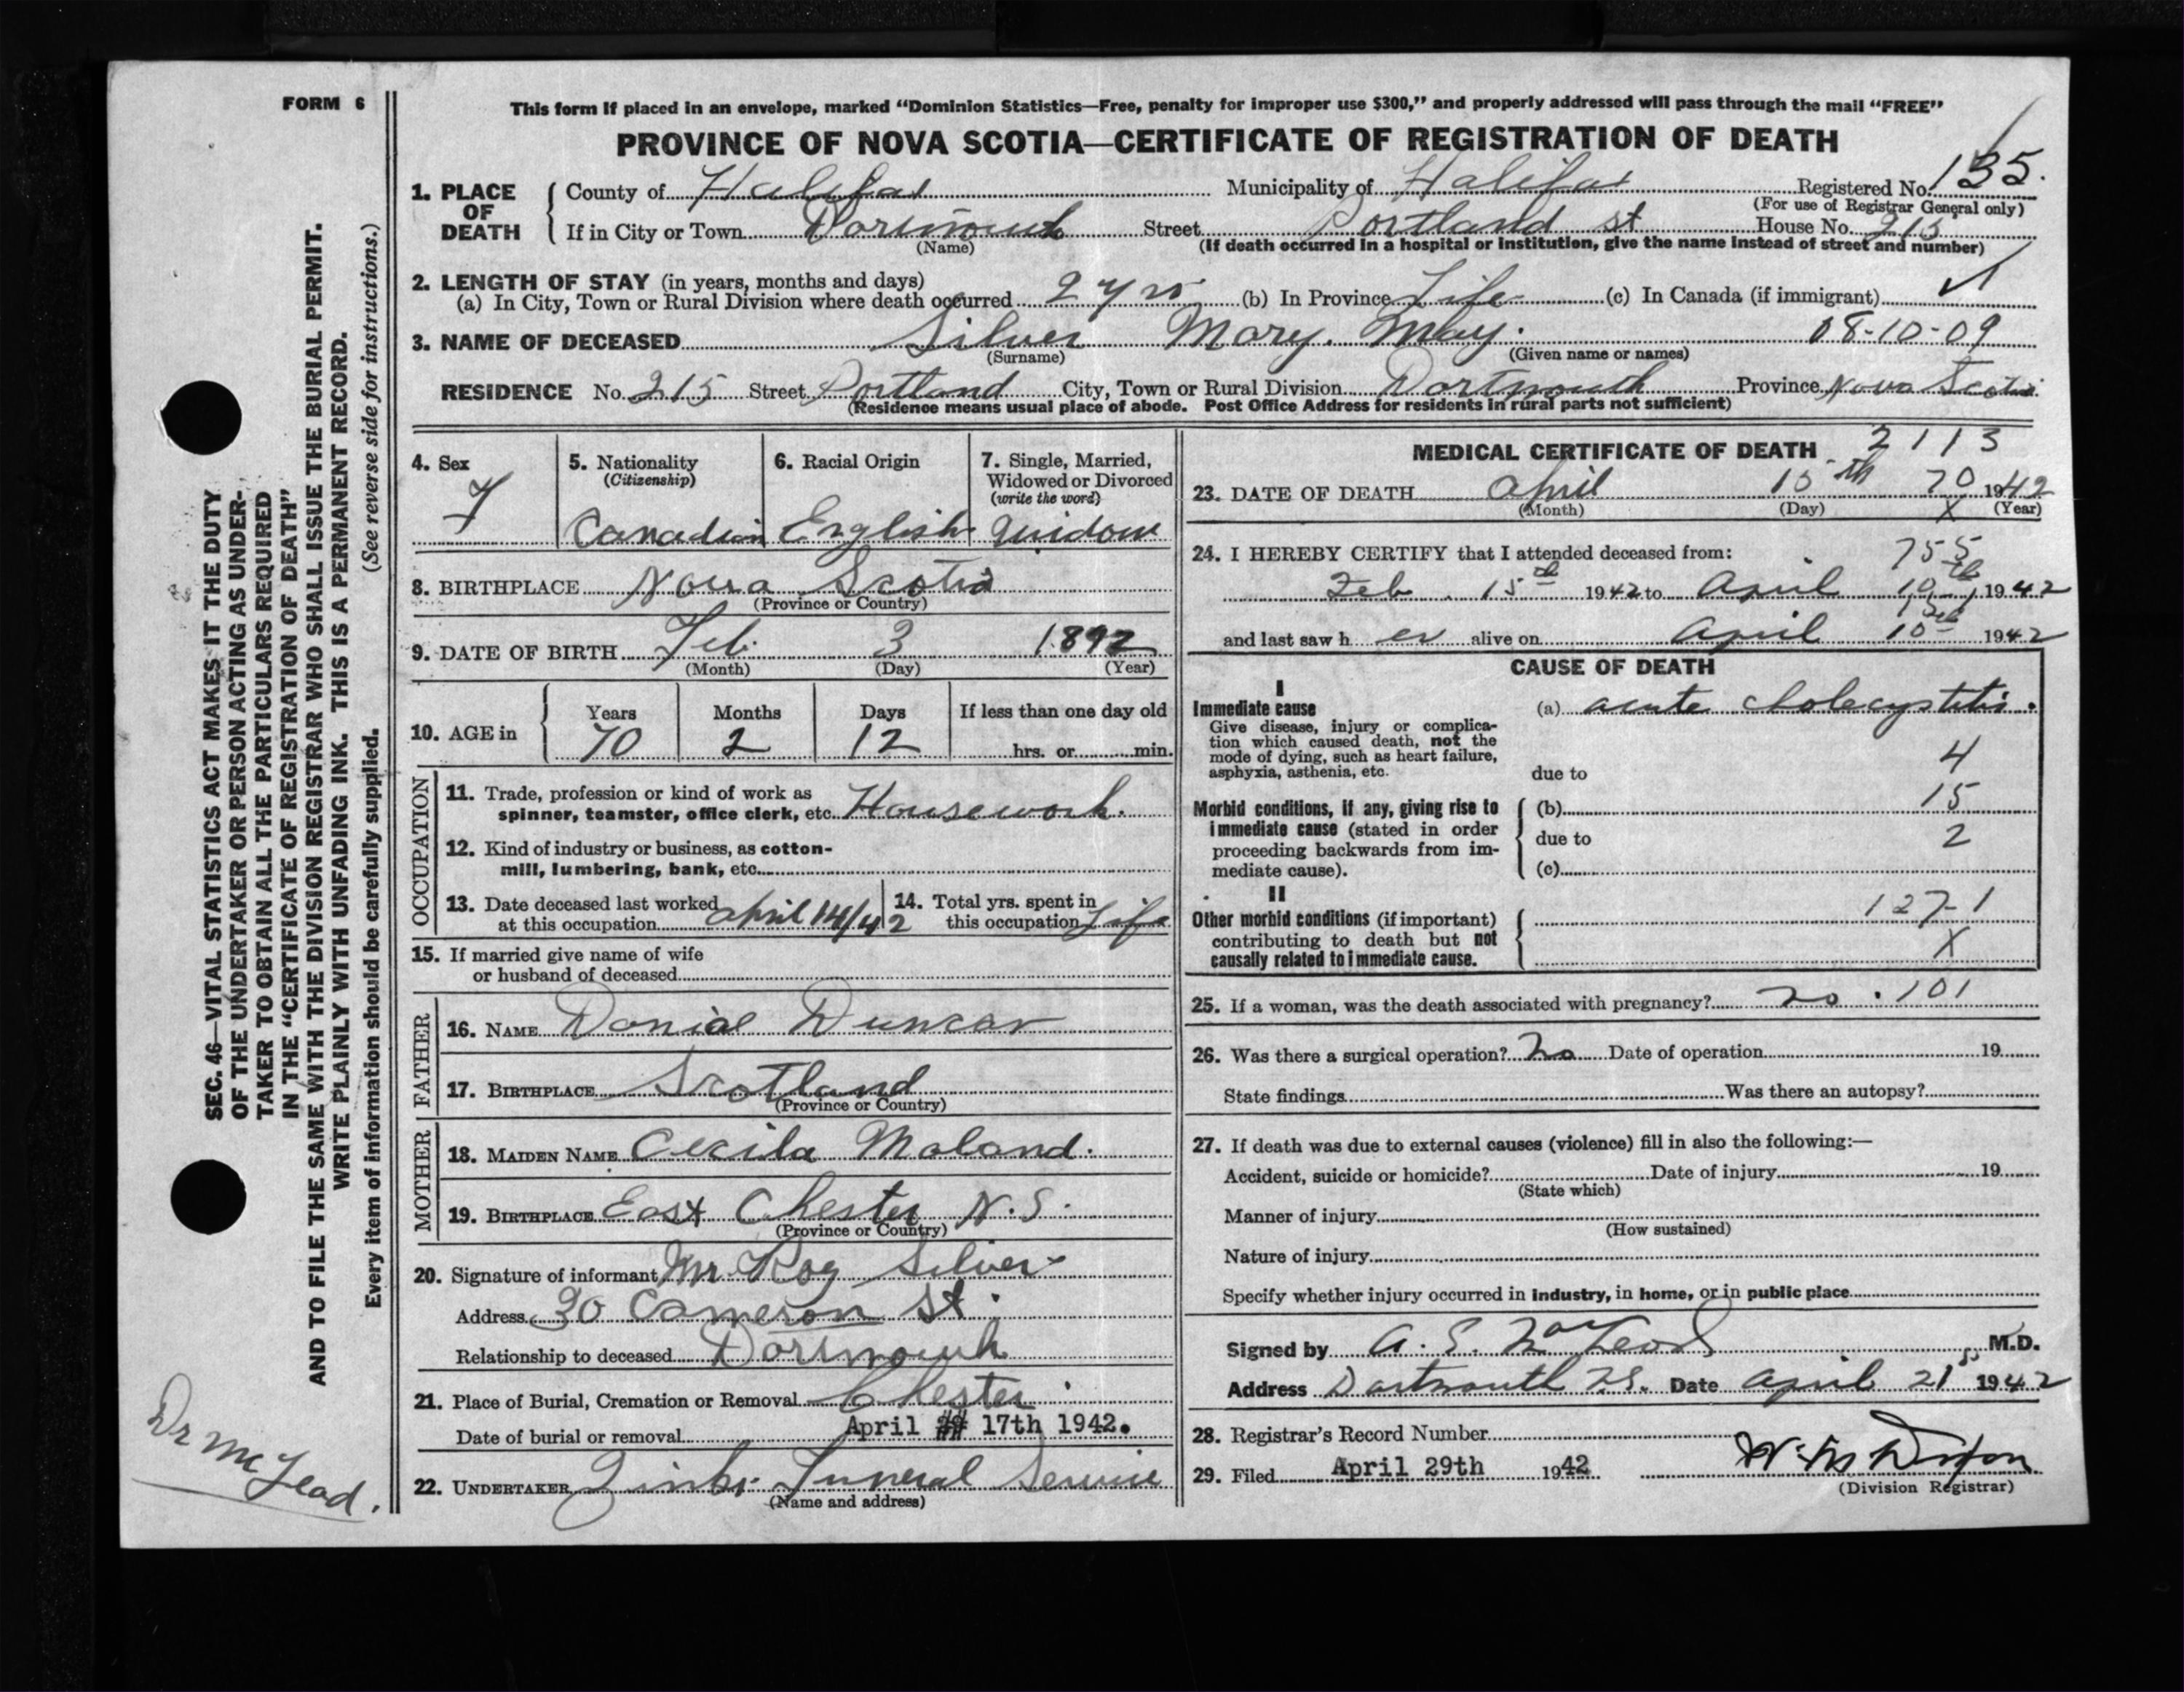 FORM 6
This form if placed in an envelope, marked “Dominion Statistics—Free, penalty for improper use $300,” and properly addressed will pass through the mail “FREE”
PROVINCE OF NOVA SCOTIA—CERTIFICATE OF REGISTRATION OF DEATH
1. PLACE OF DEATH County of Halifax Municipality of Halifax Registered No. 135.
(For use of Registrar General only)
If in City or Town Dartmouth Street Portland st House No. 215
(Name) (If death occurred in a hospital or institution, give the name instead of street and number)
2. LENGTH OF STAY (in years, months and days)
(a) In City, Town or Rural Division where death occurred 2 yrs (b) In Province Life (c) In Canada (if immigrant)
3. NAME OF DECEASED Silver Mary. May. 08-10-09
(Surname) (Given name or names)
RESIDENCE No. 215 Street Portland City, Town or Rural Division Dartmouth Province Nova Scotia
(Residence means usual place of abode. Post Office Address for residents in rural parts not sufficient)
4. Sex F
5. Nationality (Citizenship) Canadian
6. Racial Origin English
7. Single, Married, Widowed or Divorced (write the word) Widow
8. BIRTHPLACE Nova Scotia
(Province or Country)
9. DATE OF BIRTH Feb. 3 1892
(Month) (Day) (Year)
10. AGE in Years Months Days If less than one day old
70 2 12 hrs. or min.
OCCUPATION
11. Trade, profession or kind of work as
spinner, teamster, office clerk, etc. Housework.
12. Kind of industry or business, as cotton-
mill, lumbering, bank, etc.
13. Date deceased last worked
at this occupation April 14/42
14. Total yrs. spent in
this occupation Life
15. If married give name of wife
or husband of deceased
FATHER
16. NAME Danial Duncan
17. BIRTHPLACE Scotland
(Province or Country)
MOTHER
18. MAIDEN NAME Cecila Maland.
19. BIRTHPLACE East Chester N.S.
(Province or Country)
20. Signature of informant Mr Roy Silver
Address 30 Cameron St.
Relationship to deceased Dartmouth
21. Place of Burial, Cremation or Removal Chester.
Date of burial or removal April ## 17th 1942.
22. UNDERTAKER Zinks Funeral Service
(Name and address)
MEDICAL CERTIFICATE OF DEATH 2113
23. DATE OF DEATH April 15th 70 1942
(Month) (Day) X (Year)
24. I HEREBY CERTIFY that I attended deceased from: 755
Feb. 15th 1942 to April 1942
and last saw her alive on April 1942
CAUSE OF DEATH
I
Immediate cause
Give disease, injury or complica-
tion which caused death, not the
mode of dying, such as heart failure,
asphyxia, asthenia, etc.
(a) acute cholecystitis.
4
due to
Morbid conditions, if any, giving rise to
immediate cause (stated in order
proceeding backwards from im-
mediate cause).
(b) 15
due to 2
(c)
II
Other morbid conditions (if important)
contributing to death but not
causally related to immediate cause.
127-1
X
25. If a woman, was the death associated with pregnancy? no . 101
26. Was there a surgical operation? No Date of operation 19
State findings Was there an autopsy?
27. If death was due to external causes (violence) fill in also the following:—
Accident, suicide or homicide? Date of injury 19
(State which)
Manner of injury
(How sustained)
Nature of injury
Specify whether injury occurred in industry, in home, or in public place
Signed by A. S. MacLeod M.D.
Address Dartmouth N.S. Date April 21st 1942
28. Registrar's Record Number
29. Filed April 29th 1942
(Division Registrar)
SEC. 46—VITAL STATISTICS ACT MAKES IT THE DUTY
OF THE UNDERTAKER OR PERSON ACTING AS UNDER-
TAKER TO OBTAIN ALL THE PARTICULARS REQUIRED
IN THE “CERTIFICATE OF REGISTRATION OF DEATH”
AND TO FILE THE SAME WITH THE DIVISION REGISTRAR WHO SHALL ISSUE THE BURIAL PERMIT.
WRITE PLAINLY WITH UNFADING INK. THIS IS A PERMANENT RECORD.
Every item of information should be carefully supplied. (See reverse side for instructions.)
Dr McLead.